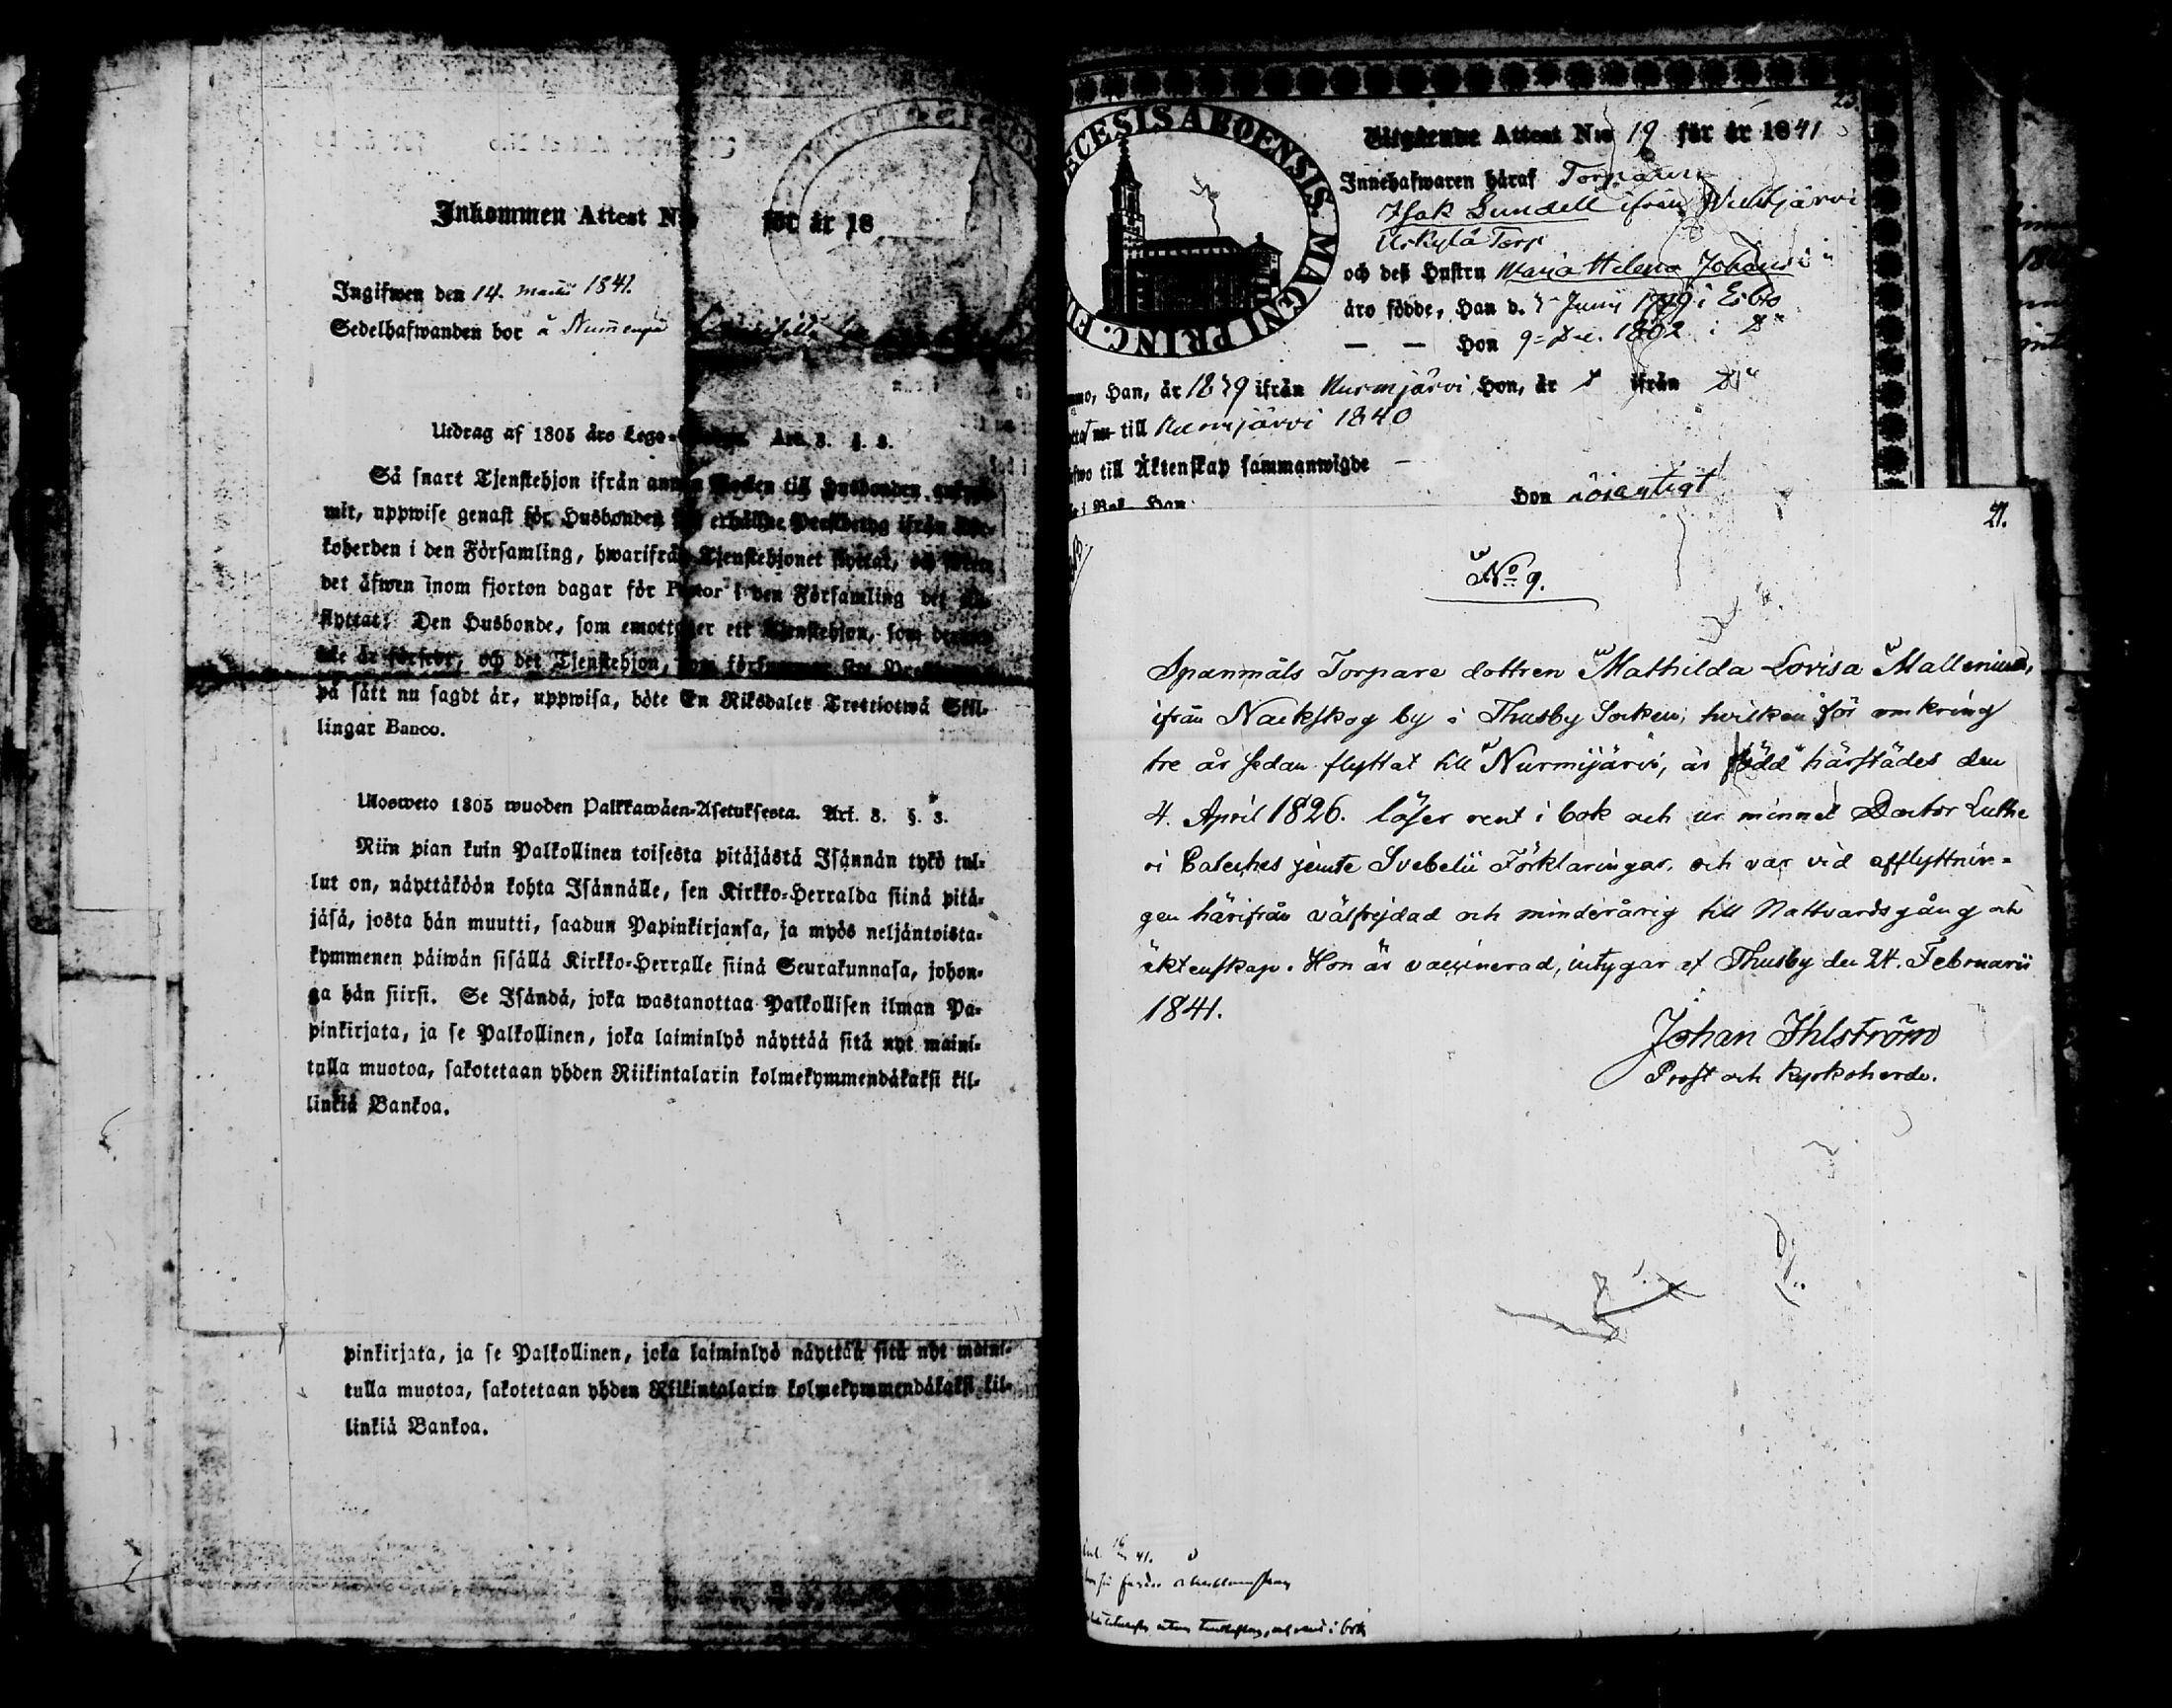 Inkommen Attest N:o för år 18
Ingifwen den 14. martii 1841.
Sedelhafwanden bor å
Utdrag af 1805 års Lego- Art. 3. §. 3.
Så snart Tjenstehjon ifrån annan Socken till Husbonden
mit, uppwise genast för Husbonden erhållne Prestbetyg ifrån Kyr-
koherden i den Församling, hwarifrån Tjenstehjonet flyttat, och
det äfwen inom fjorton dagar för Pastor i den Församling det
flyttat. Den Husbonde, som emottager ett Tjenstehjon, som
icke är försedt, och det Tjenstehjon, som
på sätt nu sagdt är, uppwisa, böte En Riksdaler Trettiotwå Skil-
lingar Banco.
Ulosweto 1805 wuoden Palkkawäen-Asetuksesta. Art. 3. §. 3.
Niin pian kuin Palkollinen toisesta pitäjästä Isännän tykö tul-
lut on, näyttäköön kohta Isännälle, sen Kirkko-Herralda siinä pitä-
jäsä, josta hän muutti, saadun Papinkirjansa, ja myös neljäntoista-
kymmenen päiwän sisällä Kirkko-Herralle siinä Seurakunnasa, johon-
ga hän siirsi. Se Isändä, joka wastanottaa Palkollisen ilman Pa-
pinkirjata, ja se Palkollinen, joka laiminlyö näyttää sitä nyt maini-
tulla muotoa, sakotetaan yhden Riikintalarin kolmekymmendäkaksi kil-
linkiä Bankoa.
pinkirjata, ja se Palkollinen, joka laiminlyö näyttää sitä nyt maini-
tulla muotoa, sakotetaan yhden Riikintalarin kolmekymmendäkaksi kil-
linkiä Bankoa.
ECESIS ABOENSIS. MAGNI PRINC. FI
Utgående Attest N:o 19 för år 1841
Innehafwaren häraf Torparen
Isak Lundell ifrån
Torp
och deß Hustru Maria Helena
äro födde, Han d. Junii i Esbo
— — Hon 9 Dec. 1802 i D:o
Han, år 1839 ifrån Nurmijärvi Hon, år ifrån
till Nurmijärvi 1840
till Äktenskap sammanwigde —
i Bok Han
Hon
21.
N:o 9.
Spanmåls Torpare dottren Mathilda Lovisa Mallenius,
ifrån Nackskog by i Thusby Socken, hvilken för omkring
tre år sedan flyttat till Nurmijärvi, är född härstädes den
4. April 1826. läser rent i bok och ur minnet Doctor Luthe
ri Cateches jemte Svebelii Förklaringar, och var vid afflyttnin-
gen härifrån välfrejdad och minderårig till Nattvardsgång och
äktenskap. Hon är vaccinerad, intygar af Thusby den 24. Februarii
1841.
Johan Ihlström
Prost och Kyrkoherde.